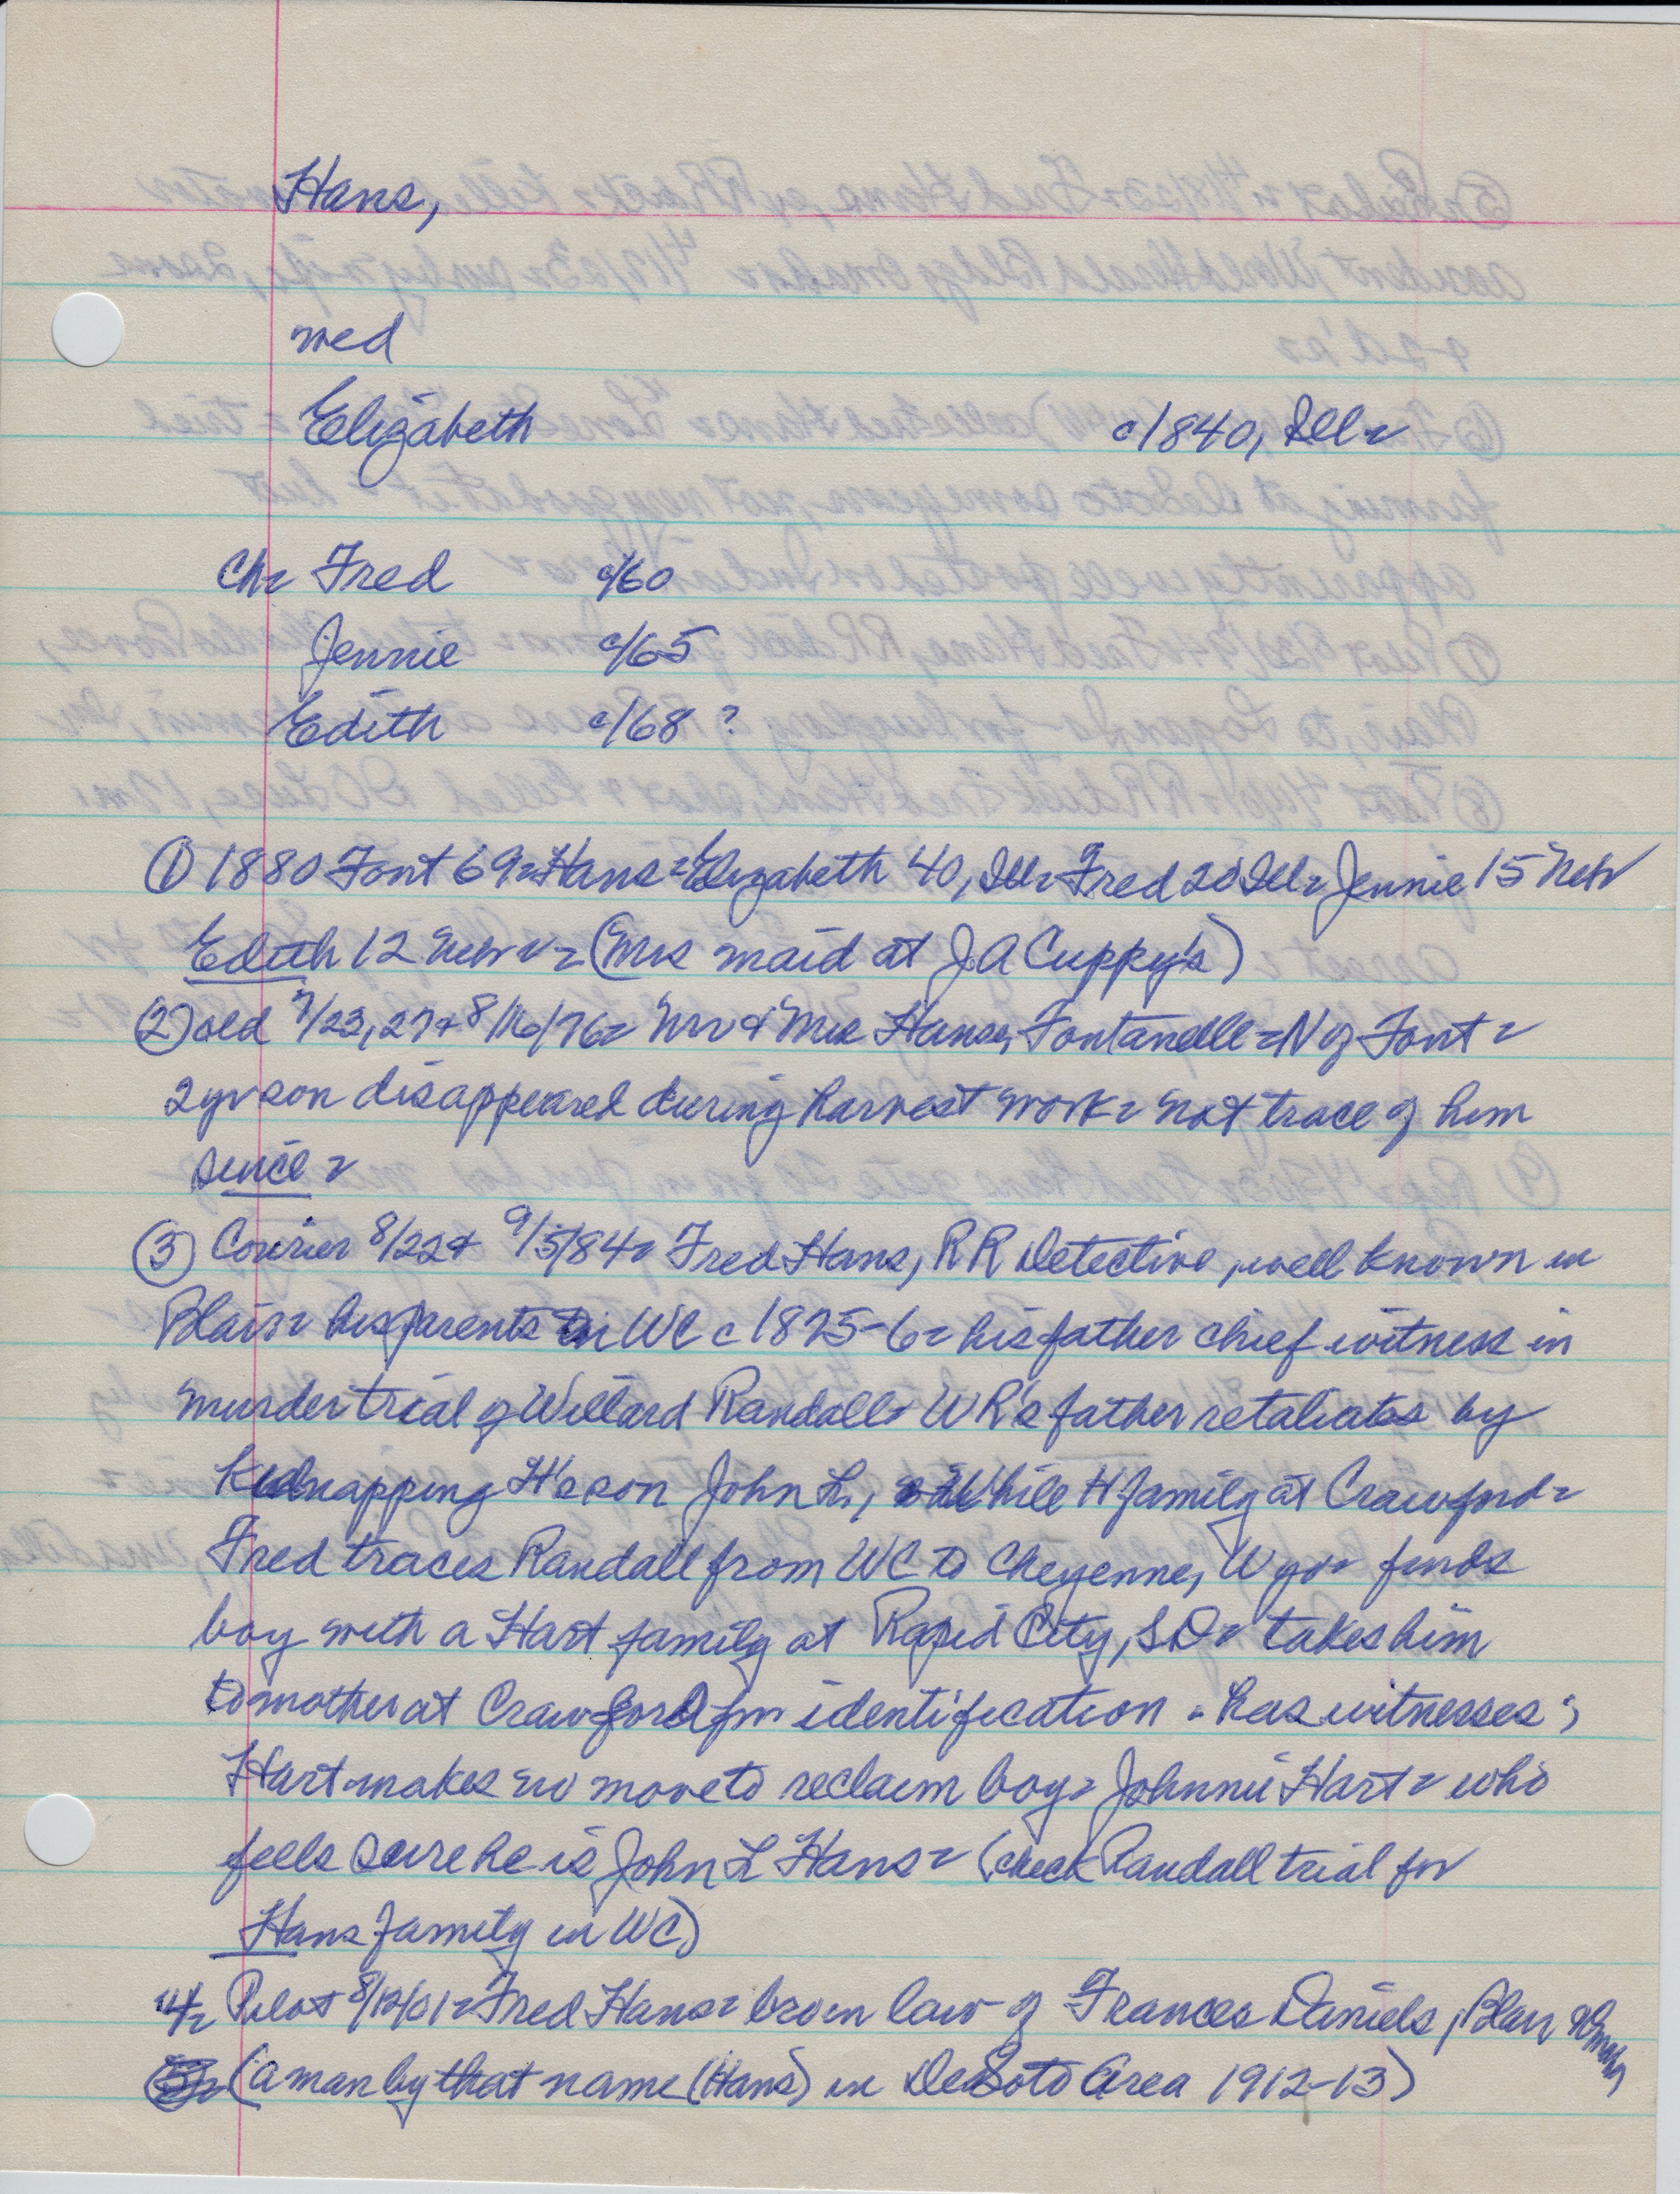 Hans,
med
Elizabeth c1840, Ill=
Ch= Fred c/60
Jennie c/65
Edith c/68 ?
① 1880 Font 69=Hans=Elizabeth 40, Ill= Fred 20 Ill= Jennie 15 Nebr
Edith 12 Nebr= (Mrs maid at J A Cuppy's)
② old 7/23, 27 & 8/16/76= Mr & Mrs Hans, Fontanelle=N of Font=
2yr son disappeared during harvest work= not trace of him
since=
③ Courier 8/22 & 9/5/84= Fred Hans, RR Detective, well known in
Blair= his parents in WC c 1875-6= his father chief witness in
murder trial of Willard Randall= WR's father retaliates by
kidnapping H's son John L., while H family at Crawford=
Fred traces Randall from WC to Cheyenne, Wyo= finds
boy with a Hart family at Rapid City, SD= takes him
to mother at Crawford for identification - has witnesses;
Hart makes no move to reclaim boy= Johnnie Hart= who
feels sure he is John L Hans= (check Randall trial for
Hans family in WC)
4= Pilot 8/ /01= Fred Hans= bro in law of Frances Daniels, Blair
(a man by that name (Hans) in DeSoto Area 1912-13)